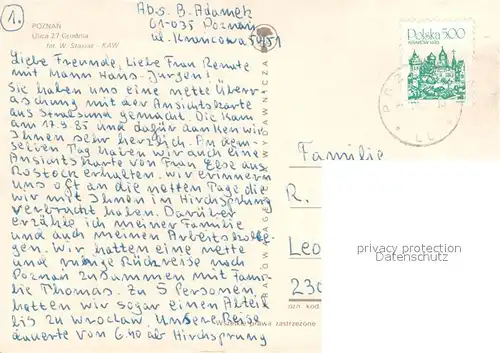 1.
POZNAŃ
Ulica 27 Grudnia
fot. W. Stasiak - KAW
Abs. B. Adamek
61-035 Poznań
ul. Krańcowa 50/51
Liebe Freunde, Liebe Frau Renate
mit Mann Hans-Jürgen!
Sie haben uns eine nette Überra-
schung mit der Ansichtskarte
aus Stralsund gemacht. Die kam
am 17.9.85 und dafür danken wir
Ihnen sehr herzlich. An dem-
selben Tag haben wir auch eine
Ansichtskarte von Frau Else aus
Rostock erhalten. Wir erinnern
uns oft an die netten Tage die
wir mit Ihnen in Hirchsprung
verbracht haben. Darüber
erzähle ich meiner Familie
und auch meinen Arbeitskolle-
gen. Wir hatten eine nette
und ruhige Rückreise nach
Poznań zusammen mit Fami-
lie Thomas. Zu 5 Personen
hatten wir sogar einen Abteil
bis zu Wrocław. Unsere Reise
dauerte von 6.40 ab Hirchsprung
KRAJOWA AGENCJA WYDAWNICZA
Polska 5,00
Familie
R.
Leo
230
privacy protection
Datenschutz
Wszelkie prawa zastrzeżone